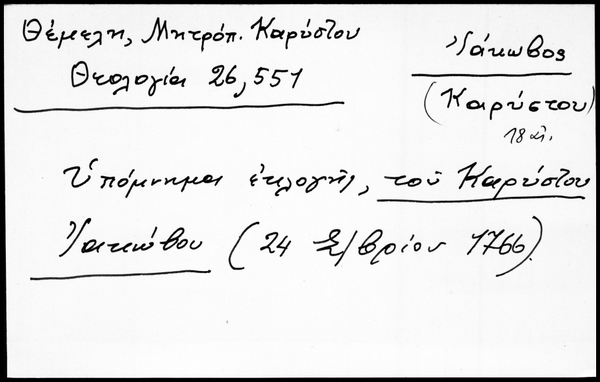 Θέμελη, Μητρόπ. Καρύστου
Θεολογία 26, 551
Ἰάκωβος
(Καρύστου)
18 αἰ.
Ὑπόμνημα ἐκλογῆς, τοῦ Καρύστου
Ἰακώβου (24 7/βρίου 1766).